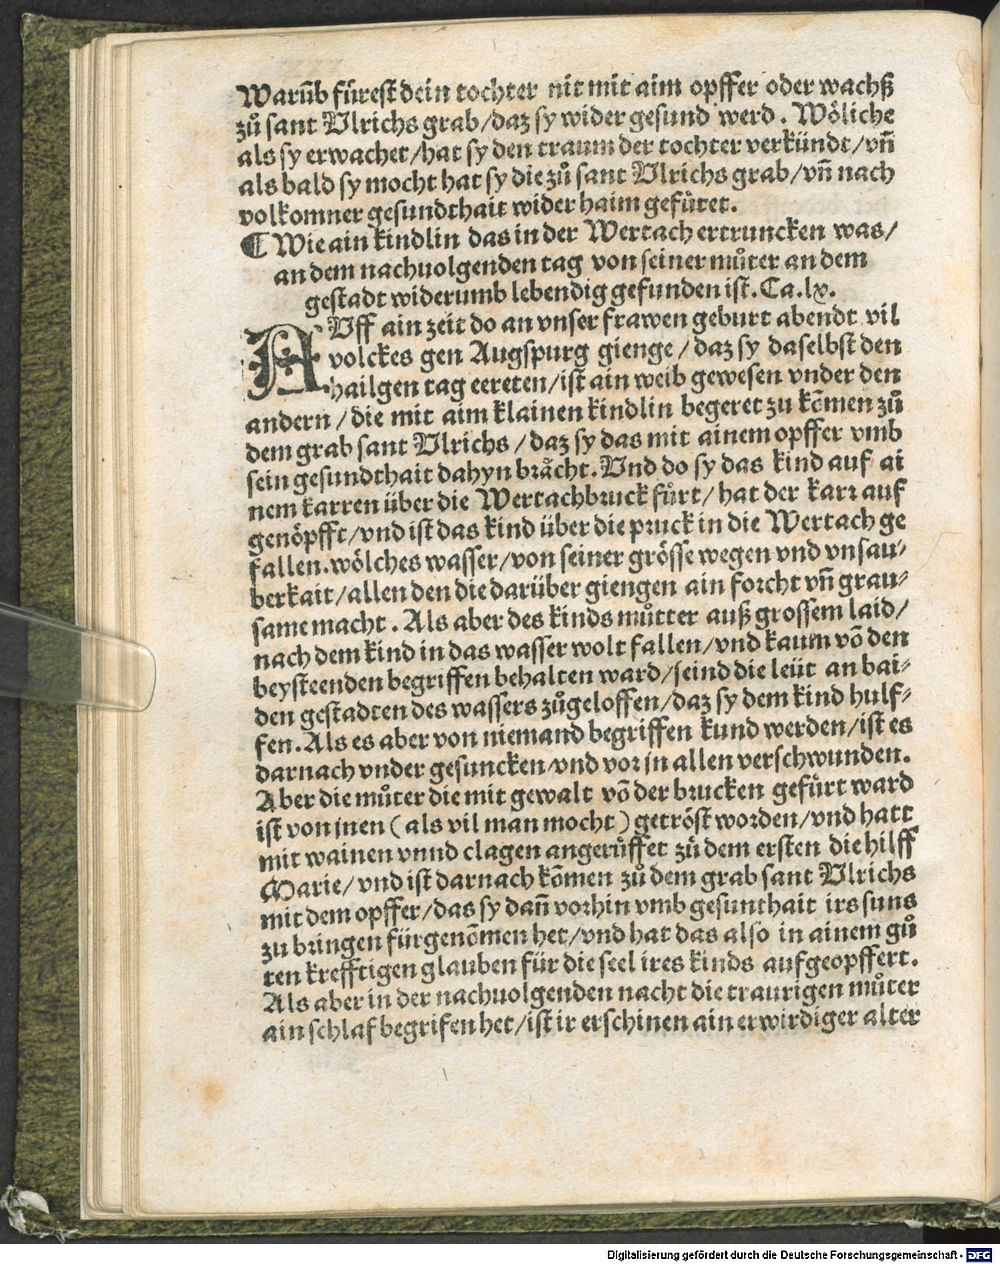 Warũb fürest dein tochter nit mit aim opffer oder wachß
zů sant Ulrichs grab/daz sy wider gesund werd. Wöliche
als sy erwachet/hat sy den traum der tochter verkündt/vñ
als bald sy mocht hat sy die zů sant Ulrichs grab/vñ nach
volkomner gesundthait wider haim gefüret.
¶ Wie ain kindlin das in der Wertach ertruncken was/
an dem nachuolgenden tag von seiner můter an dem
gestadt widerumb lebendig gefunden ist. Ca.lx.
AUff ain zeit do an vnser frawen geburt abendt vil
volckes gen Augspurg gienge/daz sy daselbst den
hailgen tag eereten/ist ain weib gewesen vnder den
andern/die mit aim klainen kindlin begeret zu kõmen zů
dem grab sant Ulrichs/daz sy das mit ainem opffer vmb
sein gesundthait dahyn brächt. Und do sy das kind auf ai
nem karren über die Wertachbruck fůrt/hat der karr auf
genöpfft/vnd ist das kind über die pruck in die Wertach ge
fallen. wölches wasser/von seiner grösse wegen vnd vnsau⸗
berkait/allen den die darüber giengen ain forcht vñ grau⸗
same macht. Als aber des kinds můtter auß grossem laid/
nach dem kind in das wasser wolt fallen/vnd kaum võ den
beysteenden begriffen behalten ward/seind die leüt an bai⸗
den gestadten des wassers zůgeloffen/daz sy dem kind hulf⸗
fen. Als es aber von niemand begriffen kund werden/ist es
darnach vnder gesuncken vnd vor in allen verschwunden.
Aber die můter die mit gewalt võ der brucken gefürt ward
ist von jnen (als vil man mocht) getröst worden/vnd hatt
mit wainen vnnd clagen angerüffet zů dem ersten die hilff
Marie/vnd ist darnach kõmen zů dem grab sant Ulrichs
mit dem opffer/das sy dañ vorhin vmb gesunthait irs suns
zu bringen fürgenõmen het/vnd hat das also in ainem gů
ten krefftigen glauben für die seel ires kinds aufgeopffert.
Als aber in der nachuolgenden nacht die traurigen můter
ain schlaf begrifen het/ist ir erschinen ain erwirdiger alter
Digitalisierung gefördert durch die Deutsche Forschungsgemeinschaft - DFG